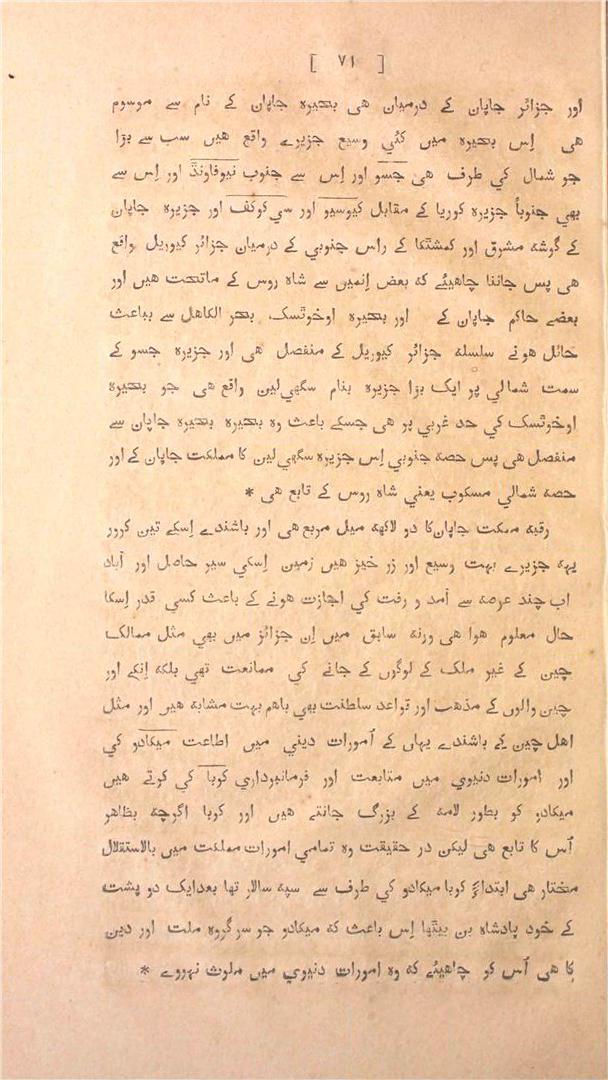 [ ٧١ ]
اور جزائر جاپان کے درمیان هی بحیرہ جاپان کے نام سے موسوم
هی اِس بحیرہ میں کئي وسیع جزیرے واقع هیں سب سے بڑا
جو شمال کي طرف هی جسو اور اِس سے جنوب نیوفاونڈ اور اِس سے
بهي جنوباً جزیرہ کوریا کے مقابل کیوسیو اور سي کوکف اور جزیرہ جاپان
کے گوشہ مشرق اور کمشتکا کے راس جنوبي کے درمیان جزائر کیوریل واقع
هی پس جاننا چاهیئے کہ بعض اِنمیں سے شاہ روس کے ماتحت هیں اور
بعضے حاکم جاپان کے اور بحیرہ اوخوتسک، بحر الکاهل سے بباعث
حائل هونے سلسلہ جزائر کیوریل کے منفصل هی اور جزیرہ جسو کے
سمت شمالي پر ایک بڑا جزیرہ بنام سگهي لین واقع هی جو بحیرہ
اوخوتسک کي حد غربي پر هی جسکے باعث وہ بحیرہ بحیرہ جاپان سے
منفصل هی پس حصہ جنوبي اِس جزیرہ سگهي لین کا مملکت جاپان کے اور
حصہ شمالي مسکوب یعني شاہ روس کے تابع هی *
رقبہ مملکت جاپان کا دو لاکهہ میل مربع هی اور باشندے اِسکے تین کرور
یہہ جزیرے بہت وسیع اور زر خیز هیں زمین اِسکي سیر حاصل اور آباد
اب چند عرصہ سے آمد و رفت کي اجازت هونے کے باعث کسي قدر اِسکا
حال معلوم هوا هی ورنہ سابق میں اِن جزائز میں بهي مثل ممالک
چین کے غیر ملک کے لوگوں کے جانے کي ممانعت تهي بلکہ اِنکے اور
چین والوں کے مذهب اور قواعد سلطنت بهي باهم بہت مشابہ هیں اور مثل
اهل چین کے باشندے یہاں کے اُمورات دیني میں اطاعت میکادو کي
اور امورات دنیوي میں متابعت اور فرمانبرداري کوبا کي کرتے هیں
میکادو کو بطور لامہ کے بزرگ جانتے هیں اور کوبا اگرچہ بظاهر
اُس کا تابع هی لیکن در حقیقت وہ تمامي امورات مملکت میں بالاستقلال
مختار هی ابتداءً کوبا میکادو کي طرف سے سپہ سالار تها بعد ایک دو پشت
کے خود پادشاہ بن بیٹها اِس باعث کہ میکادو جو سرگروہ ملت اور دین
کا هی اُس کو چاهیئے کہ وہ امورات دنیوي میں ملوث نہووے *